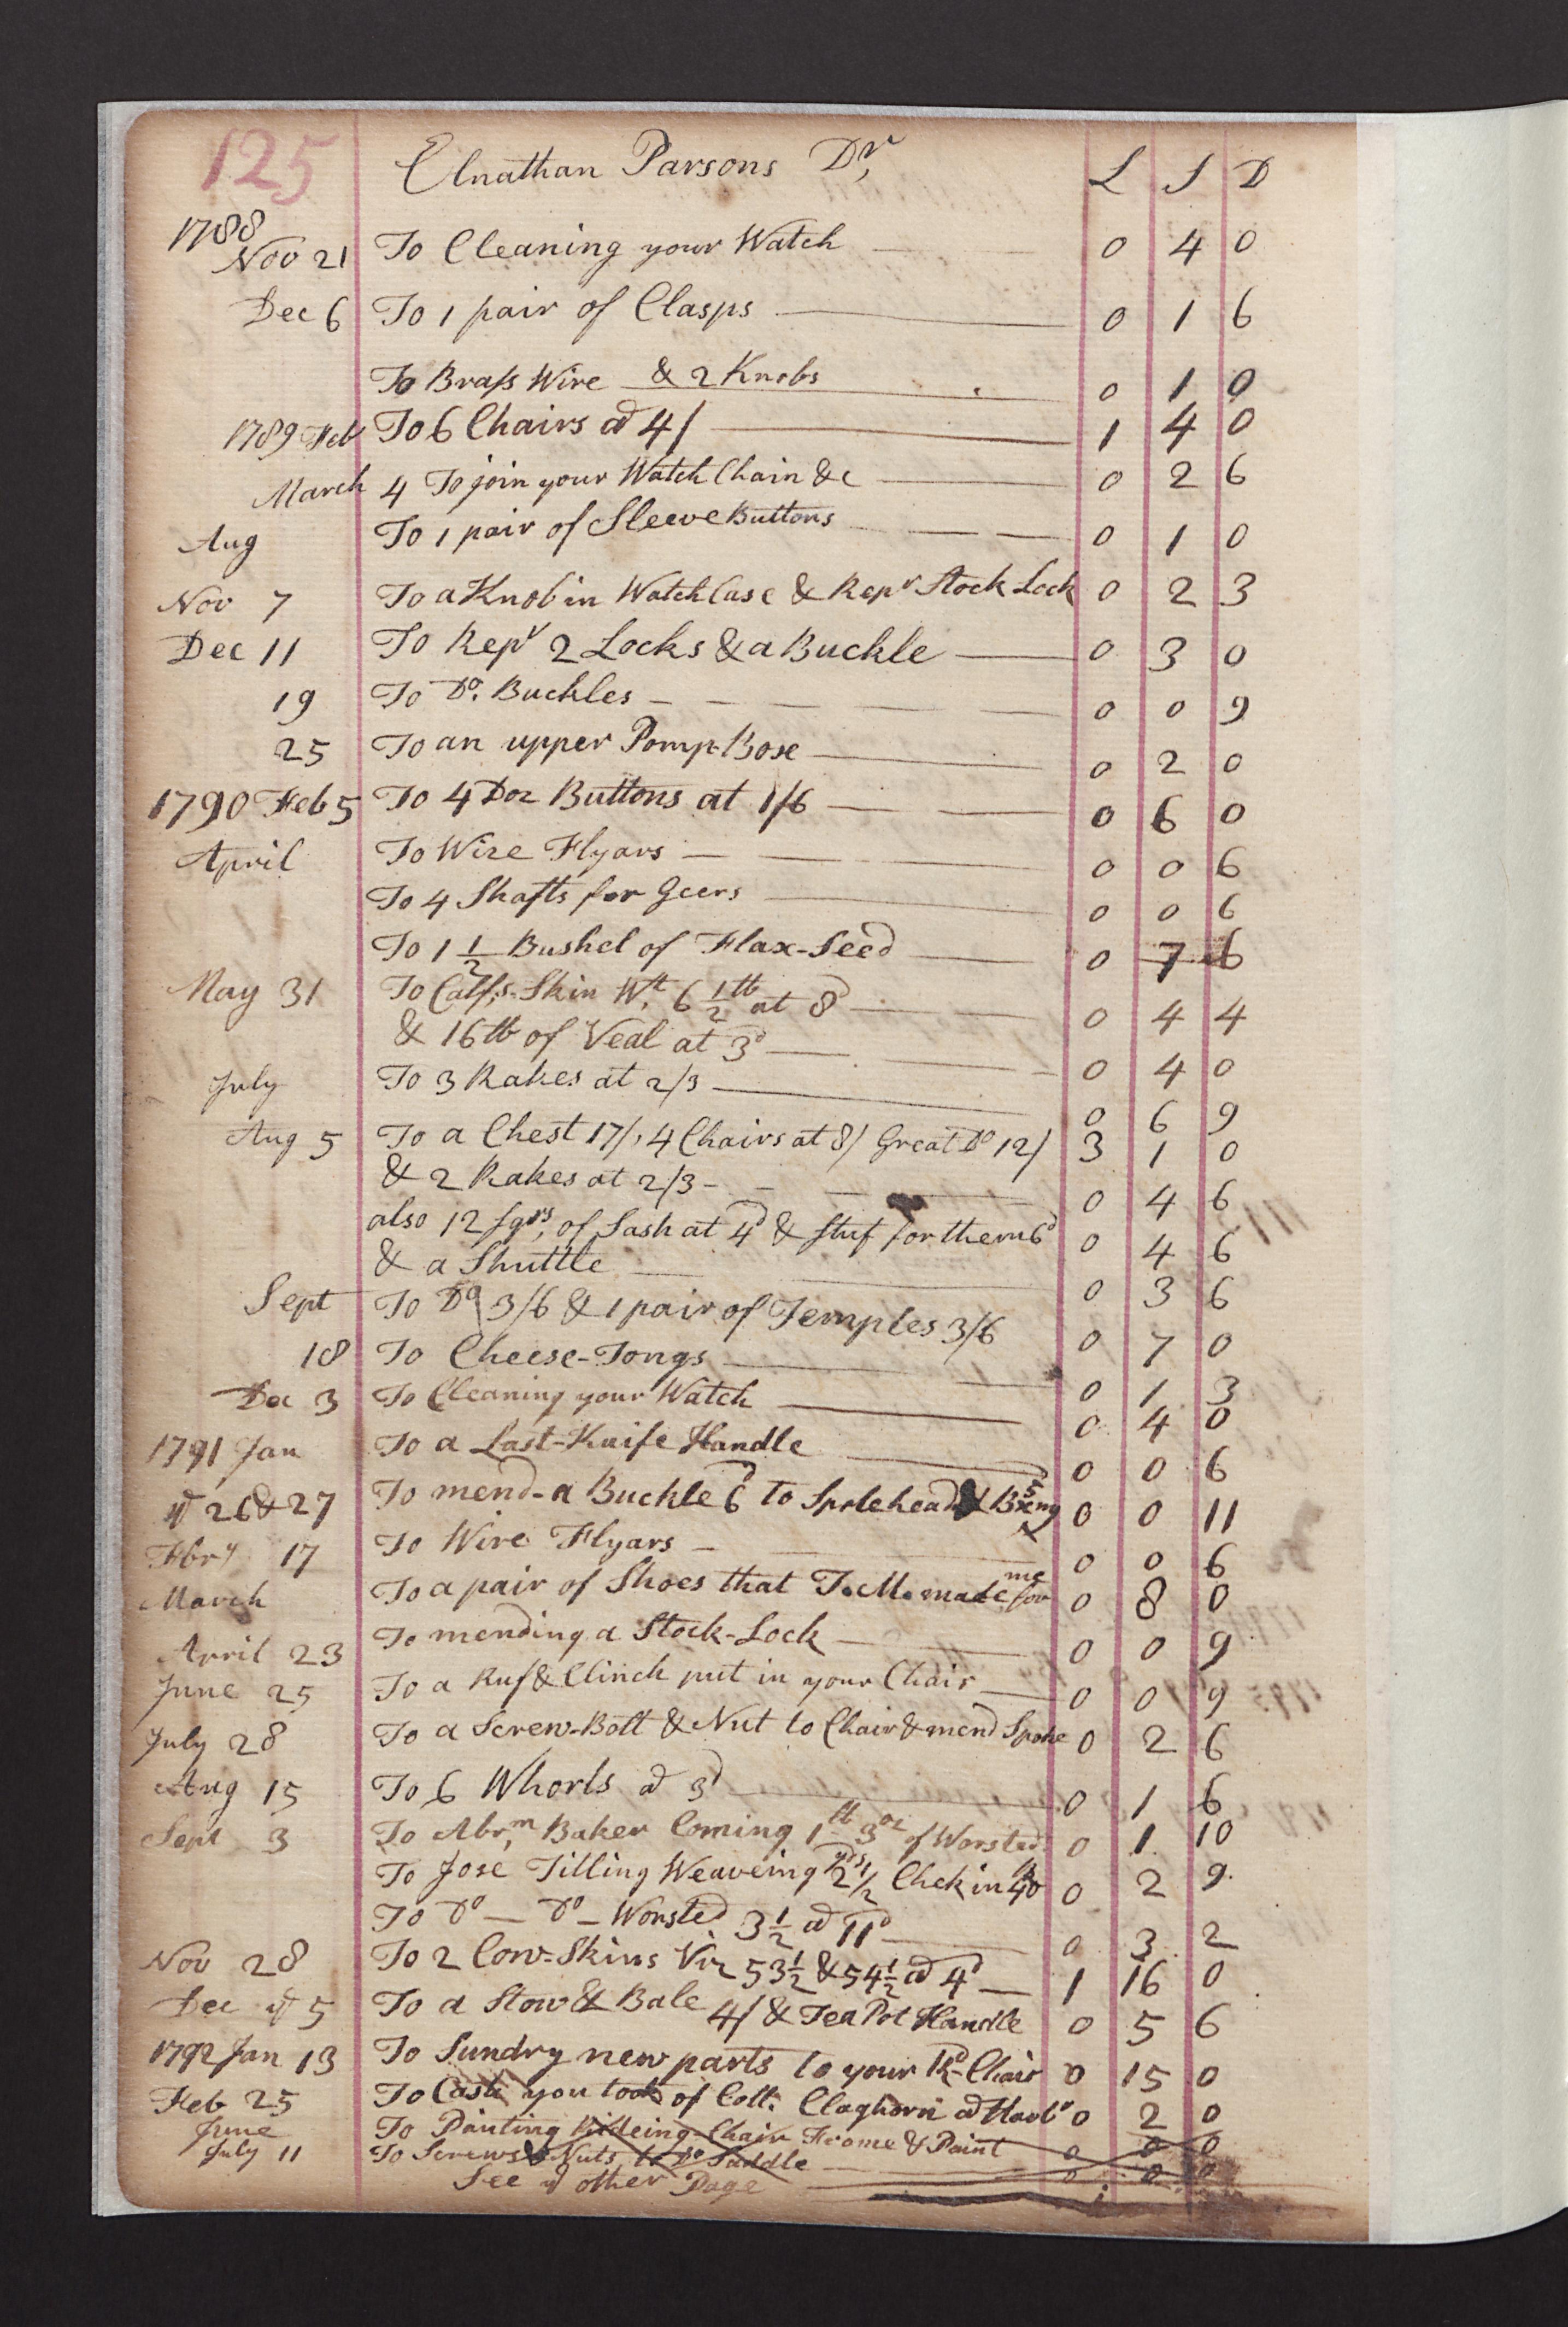 125 Elnathan Parsons Dr, L S D
1788
Nov 21 To Cleaning your Watch 0 4 0
Dec 6 To 1 pair of Clasps 0 1 6
To Brass Wire & 2 Knobs 0 1 0
1789 Feb To 6 Chairs @ 4/ 1 4 0
March 4 To join your Watch Chain &c 0 2 6
Aug To 1 pair of Sleeve Buttons 0 1 0
Nov 7 To a Knob in Watch Case & Repr Stock Lock 0 2 3
Dec 11 To Repr 2 Locks & a Buckle 0 3 0
19 To Do. Buckles 0 0 9
25 To an upper Pomp-Box 0 2 0
1790 Feb 5 To 4 Doz Buttons at 1/6 0 6 0
April To Wire Flyars 0 0 6
To 4 Shafts for Geers 0 0 6
To 1 1/2 Bushel of Flax-Seed 0 7 6
May 31 To Calf,s-Skin Wt. 6 1/2 lb at 8d 0 4 4
& 16 lb of Veal at 3d 0 4 0
July To 3 Rakes at 2/3 0 6 9
Aug 5 To a Chest 17/, 4 Chairs at 8/ Great Do 12/ 3 1 0
& 2 Rakes at 2/3 0 4 6
also 12 sqrs, of Sash at 4d & stuf for them 6d 0 4 6
& a Shuttle 0 3 6
Sept To Do 3/6 & 1 pair of Temples 3/6 0 7 0
18 To Cheese-Tongs 0 1 3
Dec 3 To Cleaning your Watch 0 4 0
1791 Jan To a Last-Knife Handle 0 0 6
26 & 27 To mend-a Buckle 6d to Spolehead & 0 0 11
Fbry 17 To Wire Flyars 0 0 6
March To a pair of Shoes that T.M. made for me 0 8 0
April 23 To mending a Stock-Lock 0 0 9
June 25 To a Ruf & Clinch put in your Chair 0 0 9
July 28 To a Screw-Bolt & Nut to Chair & mend Spoke 0 2 6
Aug 15 To 6 Whorls @ 3d 0 1 6
Sept 3 To Abrm, Baker Coming 1 lb 3 oz of Worsted 0 1 10
To Jose Tilling Weaveing 2 1/2 yds Chek in 40 0 2 9
To Do — Do — Worsted 3 1/2 @ 11d 0 3 2
Nov 28 To 2 Cow-Skins Viz 53 1/2 & 54 1/2 @ 4d 1 16 0
Dec 5 To a Stow & Bale 4/ & Tea Pot Handle 0 5 6
1792 Jan 13 To Sundry new parts to your Rd-Chair 0 15 0
Feb 25 To Cash you took of Coll. Claghorn @ 0 2 0
June To Painting Rideing-Chair Frame & Paint 0 0 0
July 11 To Screws & Nuts, to Do Saddle 0 0 0
See other Page